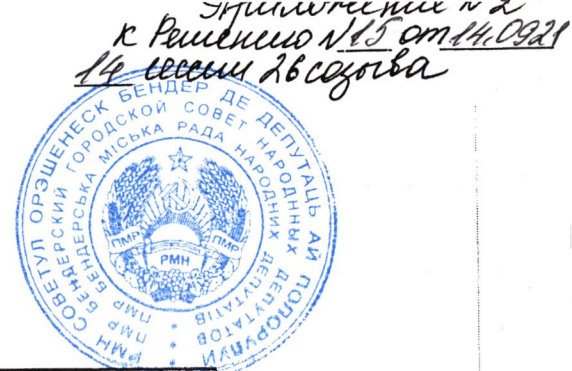 Приложение № 2
к Решению № 15 от 14.09.21
14 сессии 26 созыва
РМН СОВЕТУЛ ОРЭШЕНЕСК БЕНДЕР ДЕ ДЕПУТАЦЬ АЙ ПОПОРУЛУЙ
ПМР БЕНДЕРСКИЙ ГОРОДСКОЙ СОВЕТ НАРОДНЫХ ДЕПУТАТОВ
ПМР БЕНДЕРСЬКА МІСЬКА РАДА НАРОДНИХ ДЕПУТАТІВ
ПМР
ПМР
РМН